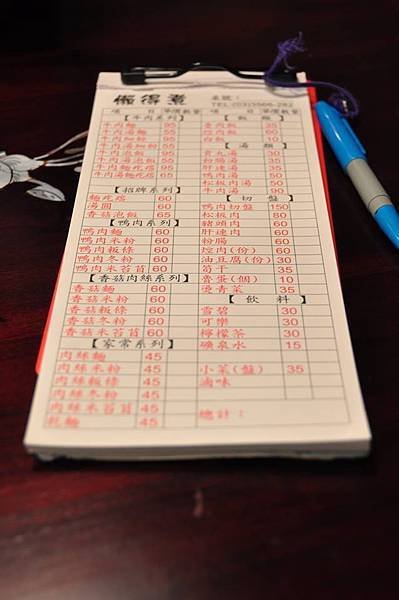 懶得煮
桌號：
TEL:(03)5966-262
項 目 單價 數量
項 目 單價 數量
【牛肉系列】
牛肉麵
牛肉湯麵 55
牛肉細粉
牛肉湯細粉 55
牛肉泡飯 95
牛肉湯泡飯 55
牛肉麵疙瘩 95
牛肉湯麵疙瘩 65
【招牌系列】
麵疙瘩 60
湯圓 60
香菇泡飯 65
【鴨肉系列】
鴨肉麵 60
鴨肉米粉 60
鴨肉粄條 60
鴨肉冬粉 60
鴨肉米苔目 60
【香菇肉絲系列】
香菇麵 60
香菇米粉 60
香菇粄條 60
香菇冬粉 60
香菇米苔目 60
【家常系列】
肉絲麵 45
肉絲米粉 45
肉絲粄條 45
肉絲冬粉 45
肉絲米苔目 45
乾麵 45
【飯 類】
魯肉飯 35
焢肉飯 60
白飯 10
【湯 類】
貢丸湯 30
粉腸湯 35
肝連湯 35
鴨肉湯 50
松板肉湯 50
牛肉湯 90
【切 盤】
鴨肉切盤 150
松板肉 80
豬頭肉 60
肝連肉 60
粉腸 60
焢肉(份) 60
油豆腐(份) 30
筍干 35
魯蛋(個) 10
燙青菜 35
【飲 料】
雪碧 30
可樂 30
檸檬茶 30
礦泉水 15
小菜(盤) 35
滷味
總計：